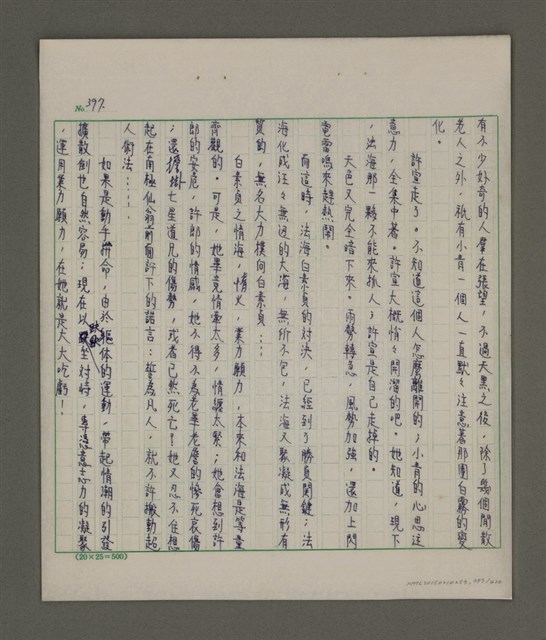 No. 397.
有不少好奇的人羣在張望,不過天黑之後,除了幾個閒散
老人之外,祇有小青一個人一直默々注意著那團白霧的變
化。
許宣走了。不知道這個人怎麼離開的;小青的心思注
意力,全集中著。許宣大概悄々開溜的吧。她知道,現下
,法海那一夥不能來抓人;許宣是自己走掉的。
天色又完全暗下來。雨勢轉急,風勢加強,還加上閃
電雷鳴來趕熱鬧。
而這時,法海白素貞的對決,已經到了勝負關鍵;法
海化成汪々無邊的大海,無所不包,法海又聚凝成無形有
質的,無名大力撲向白素貞……
白素貞之情海,情火,業力願力,本來和法海是等量
齊觀的。可是,她畢竟情牽太多,情纏太緊;她會想到許
郎的安危,許郎的情感,她不得不為老華老詹的慘死哀傷
;還擔掛七星道兄的傷勢,或者已然死亡!她又忍不住想
起在南極仙翁前面許下的諾言:誓為凡人,就不許搬動起
人術法……
如果是動手拼命,由於軀体的運動,帶起情潮的引發
擴散倒也自然容易;現在以默坐對峙,專憑意志力的凝聚
,運用業力願力,在她就是大大吃虧!
(20×25=500)